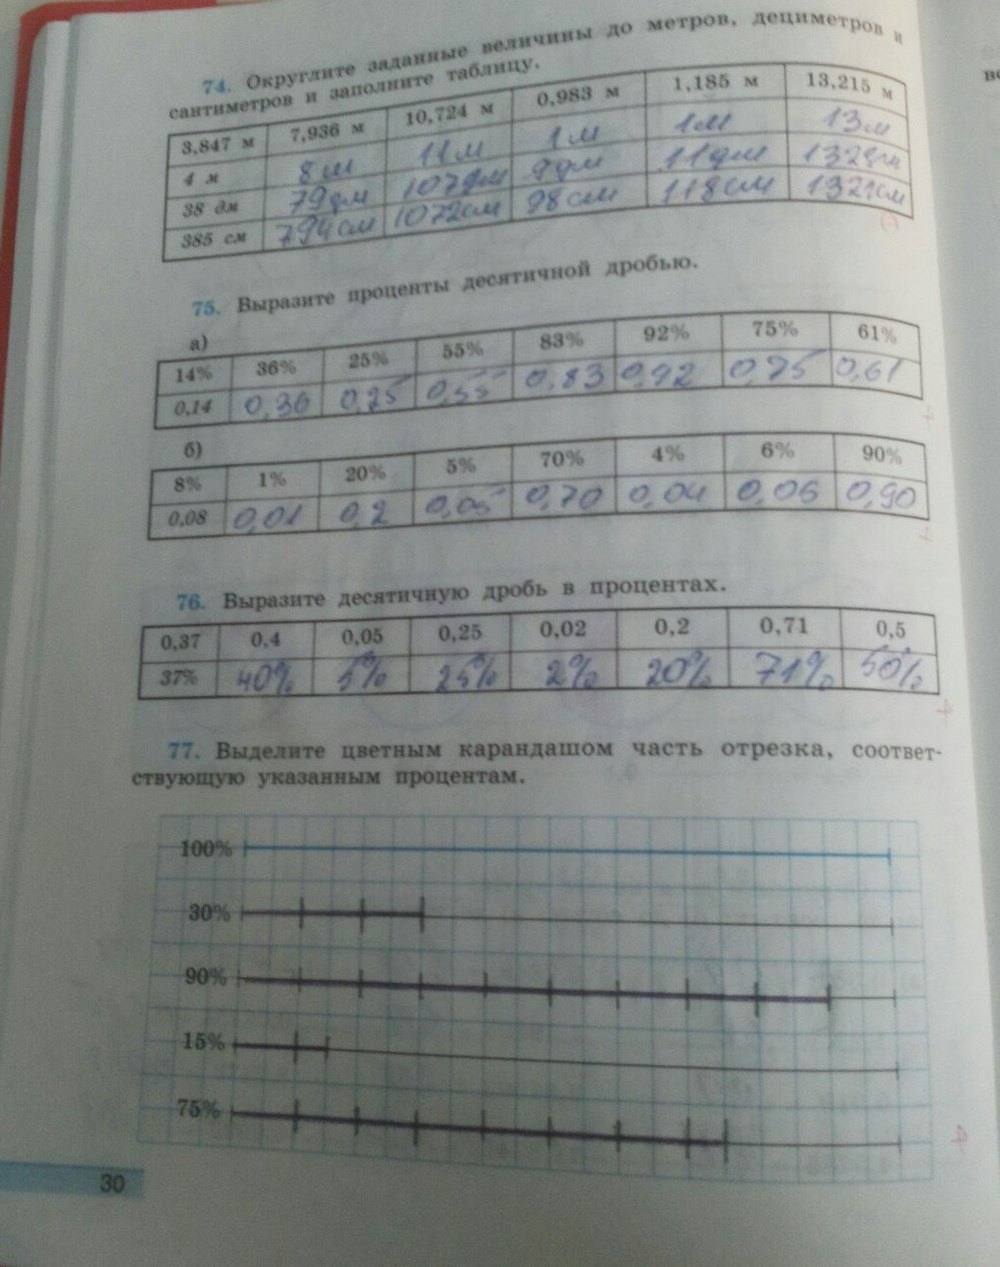 74. Округлите заданные величины до метров, дециметров и
сантиметров и заполните таблицу.
3,847 м 7,936 м 10,724 м 0,983 м 1,185 м 13,215 м
4 м 8 м 11 м 1 м 1 м 13 м
38 дм 79 дм 107 дм 9 дм 11 дм 132 дм
385 см 794 см 1072 см 98 см 118 см 1321 см
75. Выразите проценты десятичной дробью.
а)
14% 36% 25% 55% 83% 92% 75% 61%
0,14 0,36 0,25 0,55 0,83 0,92 0,75 0,61
б)
8% 1% 20% 5% 70% 4% 6% 90%
0,08 0,01 0,2 0,05 0,70 0,04 0,06 0,90
76. Выразите десятичную дробь в процентах.
0,37 0,4 0,05 0,25 0,02 0,2 0,71 0,5
37% 40% 5% 25% 2% 20% 71% 50%
77. Выделите цветным карандашом часть отрезка, соответ-
ствующую указанным процентам.
100%
30%
90%
15%
75%
30